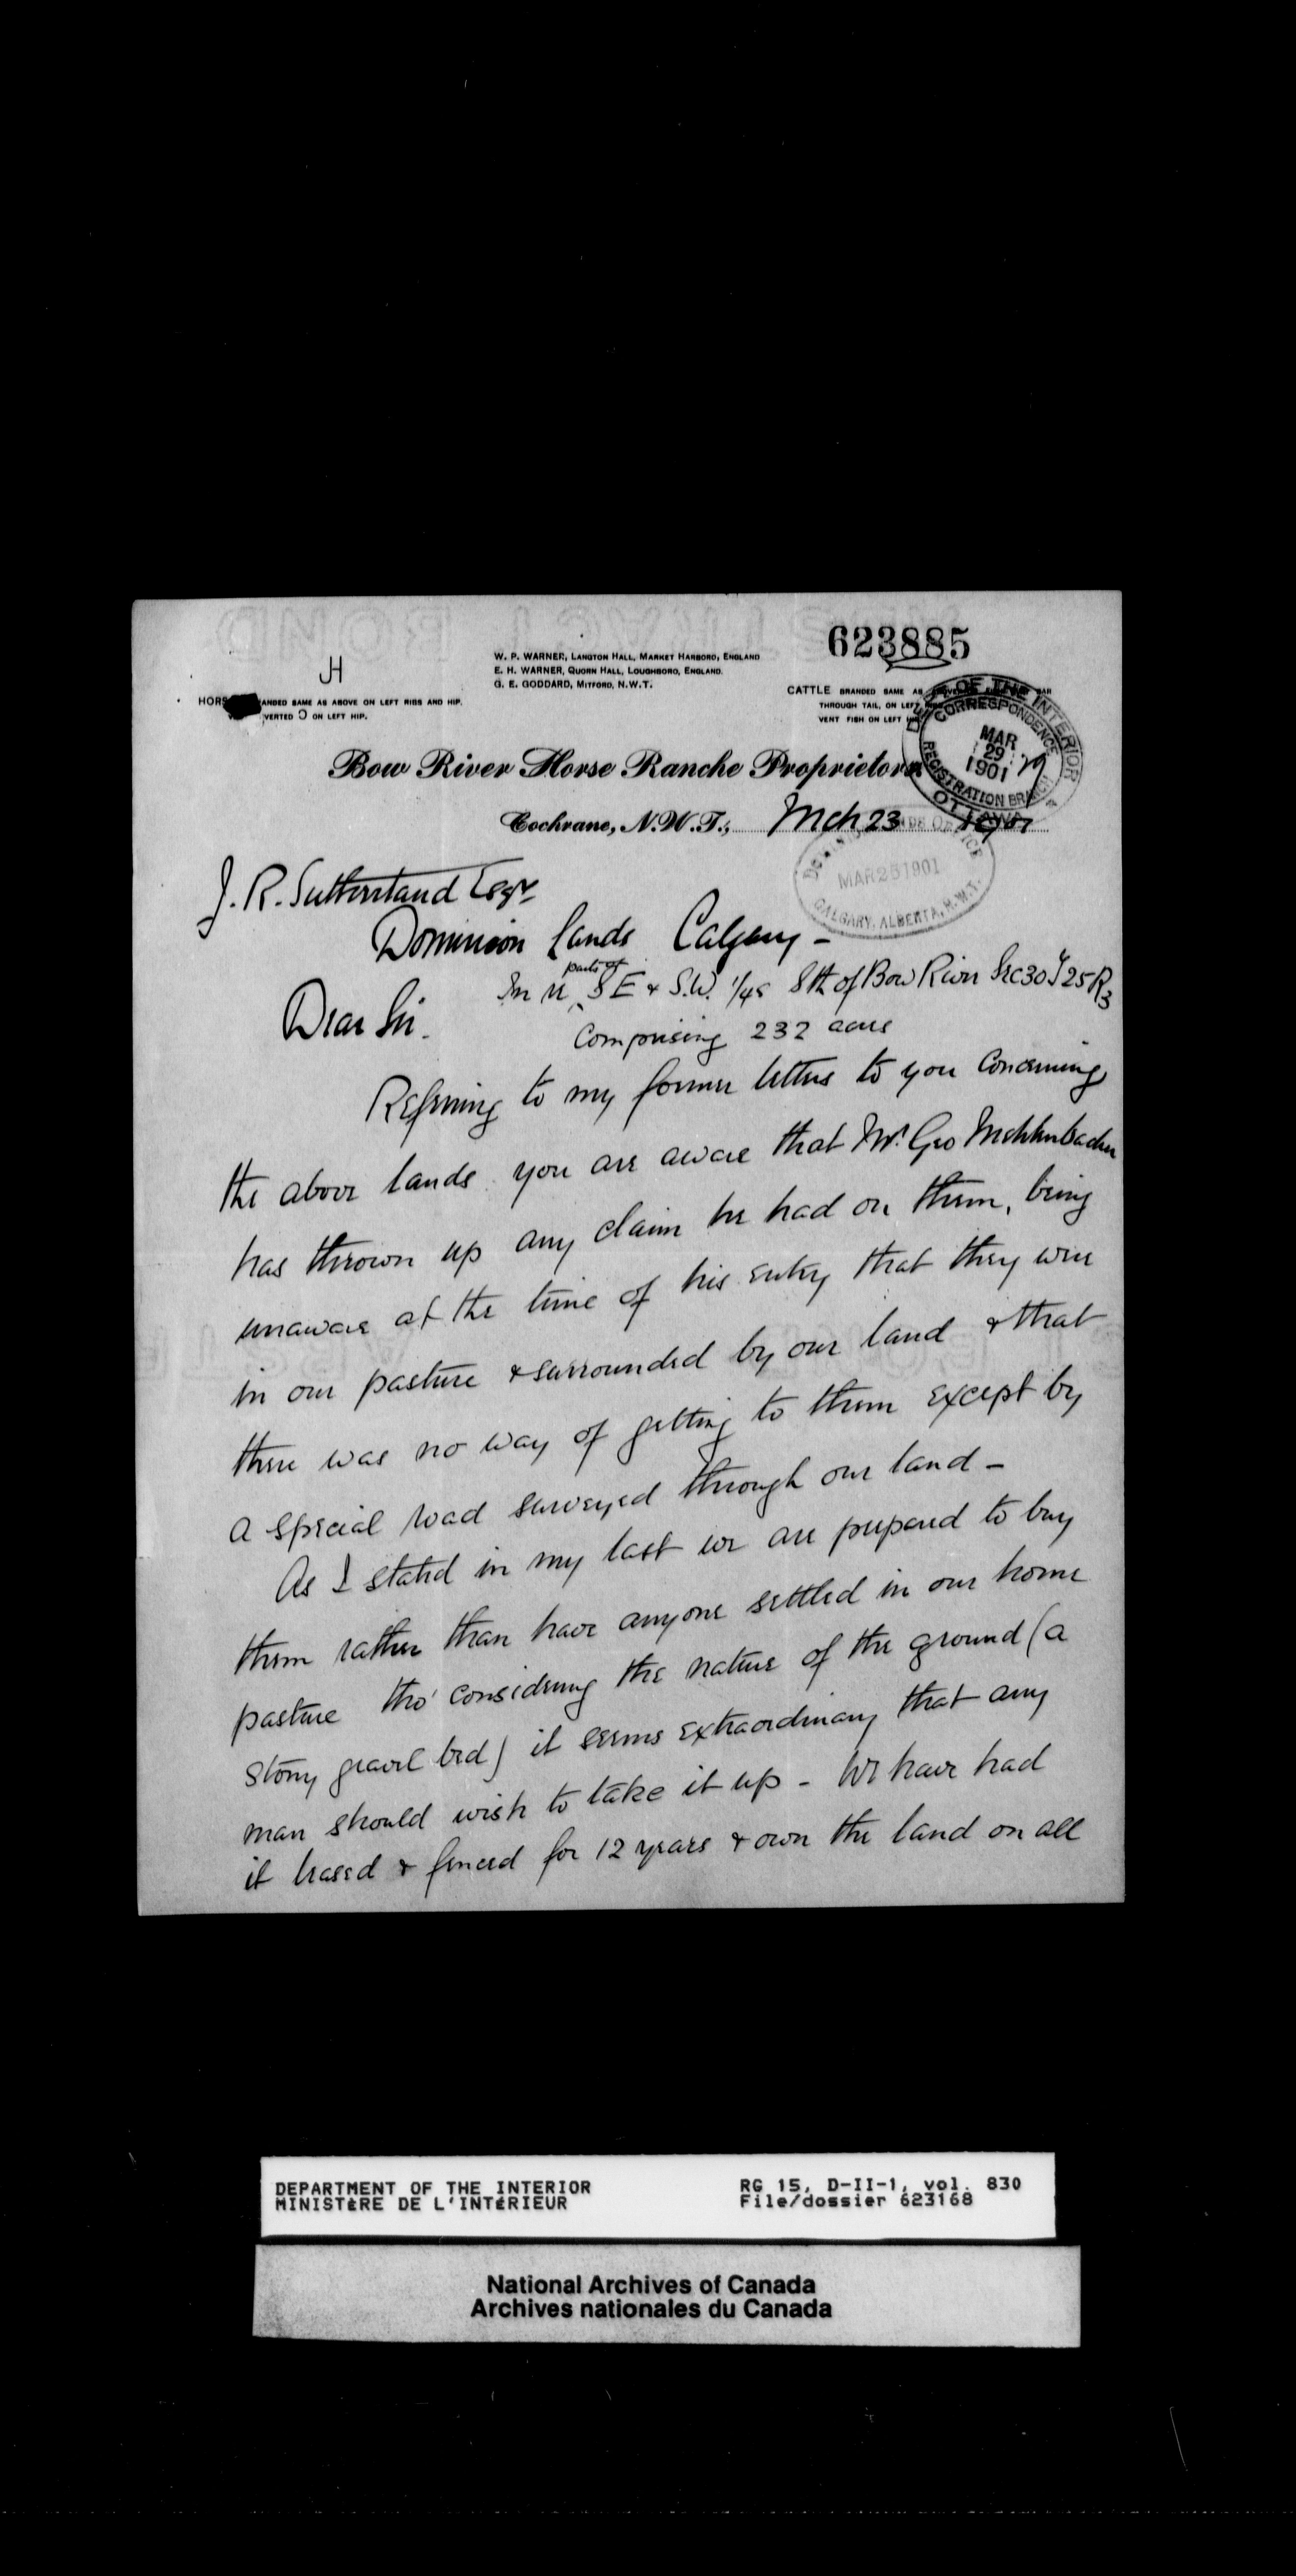 623885
JH
W. P. WARNER, LANGTON HALL, MARKET HARBORO, ENGLAND
E. H. WARNER, QUORN HALL, LOUGHBORO, ENGLAND.
G. E. GODDARD, MITFORD, N.W.T.
HORS ANDED SAME AS ABOVE ON LEFT RIBS AND HIP.
VERTED Ɔ ON LEFT HIP.
CATTLE BRANDED SAME AS BAR
THROUGH TAIL, ON LEFT
VENT FISH ON LEFT
DEPT OF THE INTERIOR
CORRESPONDENCE
MAR
29
1901
REGISTRATION BRANCH
OTTAWA
Bow River Horse Ranche Proprietors
Cochrane, N.W.T., Mch 23 1901
MAR 25 1901
CALGARY, ALBERTA, N.W.T.
J. R. Sutherland Esqr
Dominion Lands Calgary -
parts of
In re SE & S.W. 1/4s Sth of Bow River Sec 30 T 25 R 3
Dear Sir.
Comprising 232 acres
Referring to my former letters to you concerning
the above lands you are aware that Mr. Geo
has thrown up any claim he had on them, being
unaware at the time of his entry that they were
in our pasture & surrounded by our land & that
there was no way of getting to them except by
a special road surveyed through our land -
As I stated in my last we are prepared to buy
them rather than have anyone settled in our home
pasture tho' considering the nature of the ground (a
stony gravel bed) it seems extraordinary that any
man should wish to take it up - We have had
it leased & fenced for 12 years & own the land on all
DEPARTMENT OF THE INTERIOR
MINISTÈRE DE L'INTÉRIEUR
RG 15, D-II-1, vol. 830
File/dossier 623168
National Archives of Canada
Archives nationales du Canada